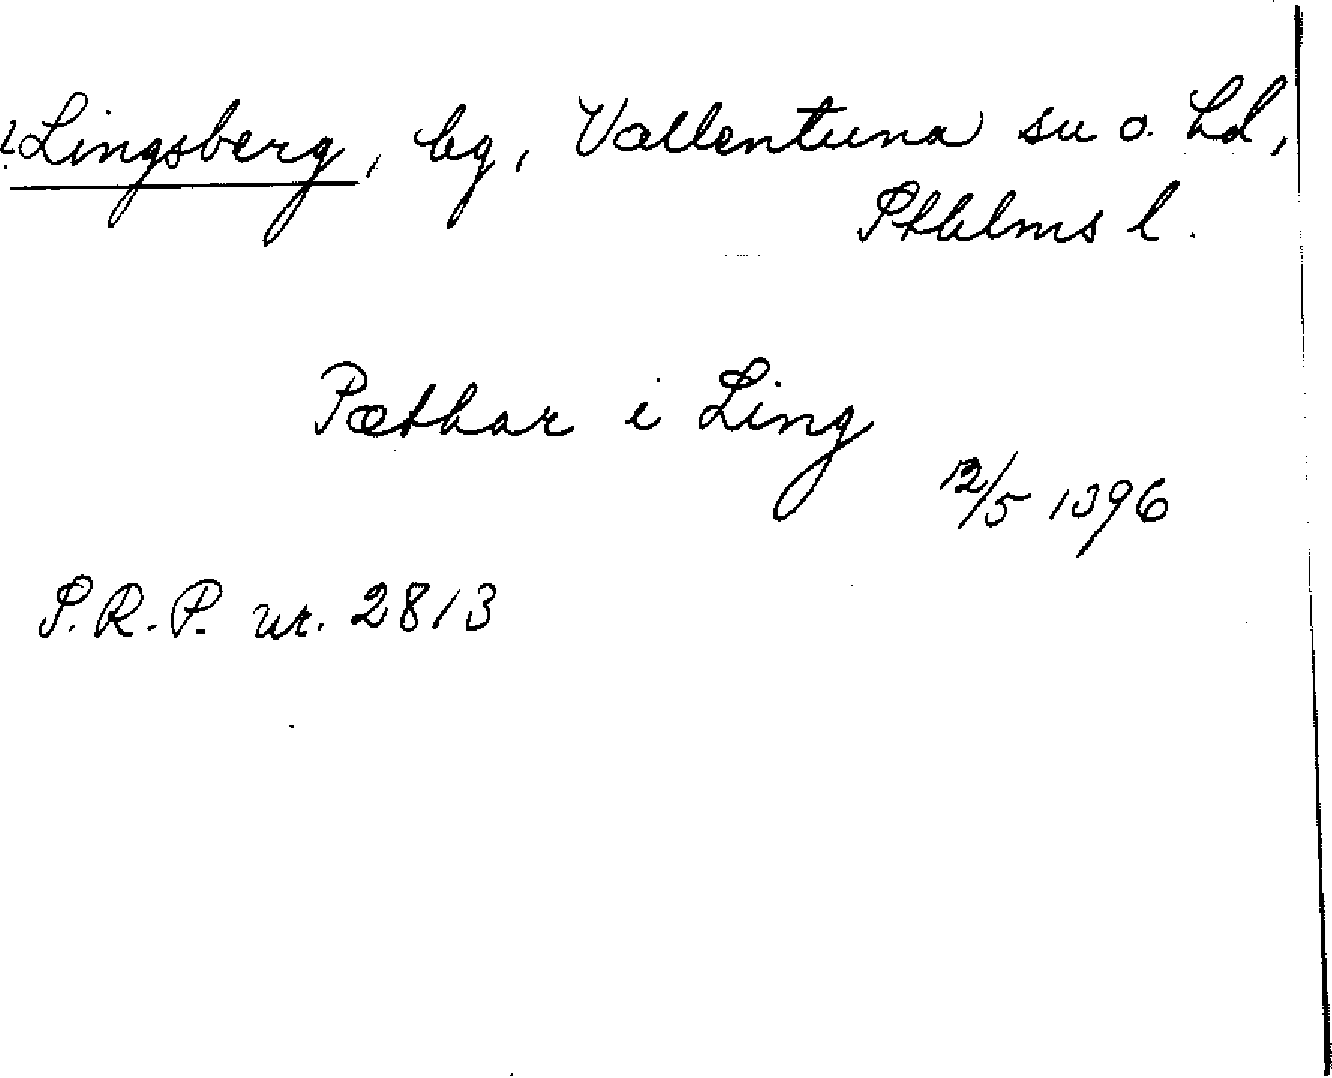 ?Lingsberg, bg, Vallentuna sn o. hd,
Sthlms l.
Pæthar i Ling
12/5 1396
S.R.P. nr. 2813